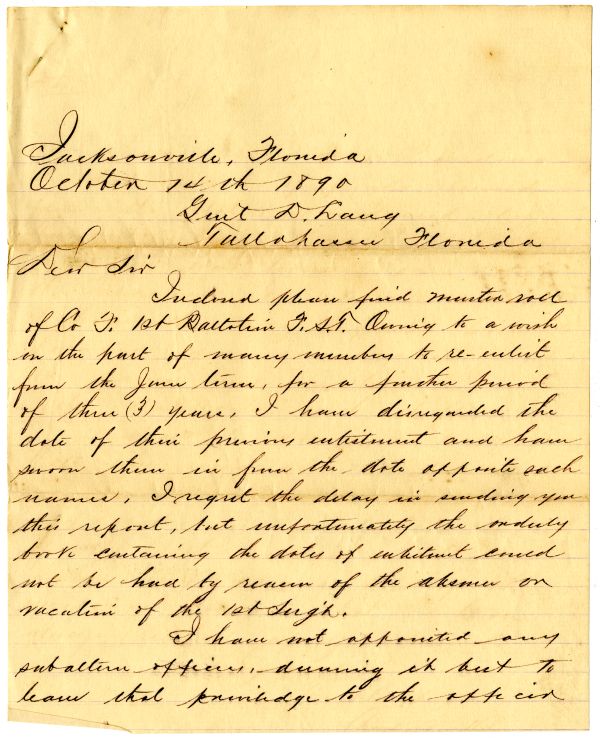 Jacksonville, Florida
October 14th 1890
Genl D. Lang
Tallahassee Florida
Dear Sir
Inclosed please find muster roll
of Co F. 1st Battalion F.S.T. Owing to a wish
on the part of many members to re-enlist
from the June term, for a further period
of three (3) years, I have disregarded the
date of their previous enlistment and have
sworn them in from the date opposite each
names, I regret the delay in sending you
this report, but unfortunately the orderly
book containing the dates of enlistment could
not be had by reason of the absence on
vacation of the 1st Sergh.
I have not appointed any
subaltern officers, deeming it best to
leave that priviledge to the officer